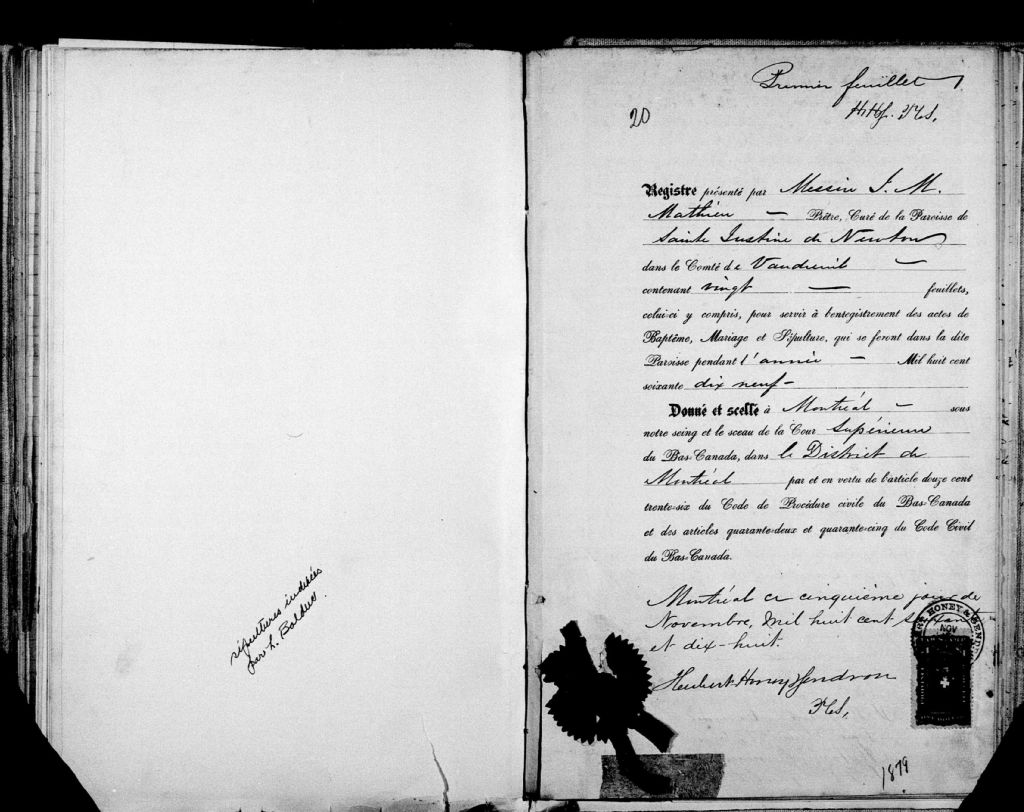 sépultures indexées
par L. Baldus.
Premier feuillet
HHG. PCS.
20
Registre présenté par Messire J. M.
Mathieu — Prêtre, Curé de la Paroisse de
Sainte Justine de Newton
dans le Comté de Vaudreuil —
contenant vingt — feuillets,
celui-ci y compris, pour servir à l'enregistrement des actes de
Baptême, Mariage et Sépulture, qui se feront dans la dite
Paroisse pendant l'année — Mil huit cent
soixante dix neuf —
Donné et scellé à Montréal — sous
notre seing et le sceau de la Cour Supérieure
du Bas-Canada, dans le District de
Montréal par et en vertu de l'article douze cent
trente-six du Code de Procédure civile du Bas-Canada
et des articles quarante-deux et quarante-cinq du Code Civil
du Bas-Canada.
Montréal ce cinquième jour de
Novembre, Mil huit cent soixante
et dix-huit.
Hubert Honey & Gendron
PCS.
HONEY & GEND
NOV
1879